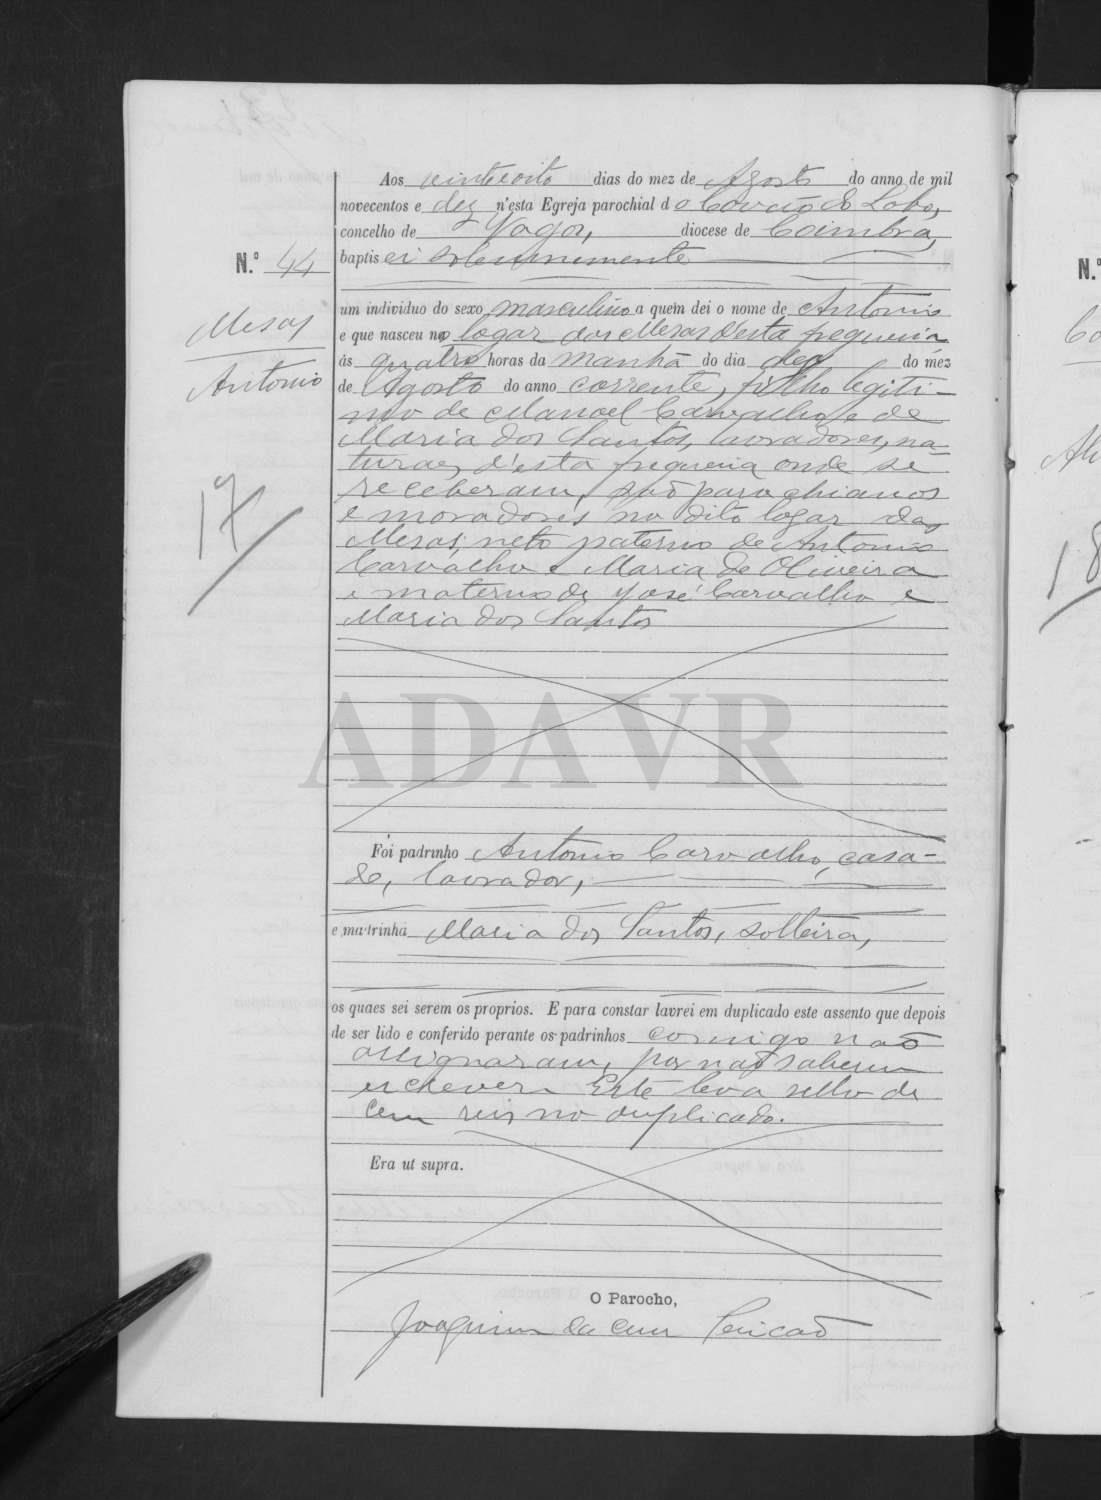 Aos vinte oito dias do mez de Agosto do anno de mil
novecentos e dez n'esta Egreja parochial do Covão do Lobo,
concelho de Vagos, diocese de Coimbra,
N.º 44
baptisei solemnemente
um individuo do sexo masculino a quem dei o nome de Antonio
Mesas
e que nasceu no logar das Mesas d'esta freguezia
Antonio
ás quatro horas da manhã do dia dez do mez
de Agosto do anno corrente, filho legiti-
mo de Manoel Carvalho e de
Maria dos Santos, lavradores, na-
turaes d'esta freguezia onde se
receberam, são parochianos
e moradores no dito logar das
Mesas, neto paterno de Antonio
Carvalho e Maria de Oliveira
e materno de José Carvalho e
Maria dos Santos
17
ADAVR
Foi padrinho Antonio Carvalho, casa-
do, lavrador,
e madrinha Maria dos Santos, solteira,
os quaes sei serem os proprios. E para constar lavrei em duplicado este assento que depois
de ser lido e conferido perante os padrinhos comigo não
assignaram, por não saberem
escrever. Este leva sello de
cem reis no duplicado.
Era ut supra.
O Parocho,
Joaquim da
N.º
18